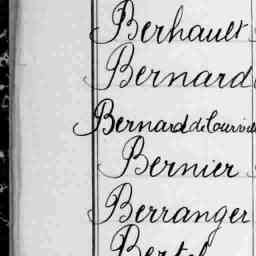 Berhault
Bernard
Bernard de Courville
Bernier
Berranger
Bertel